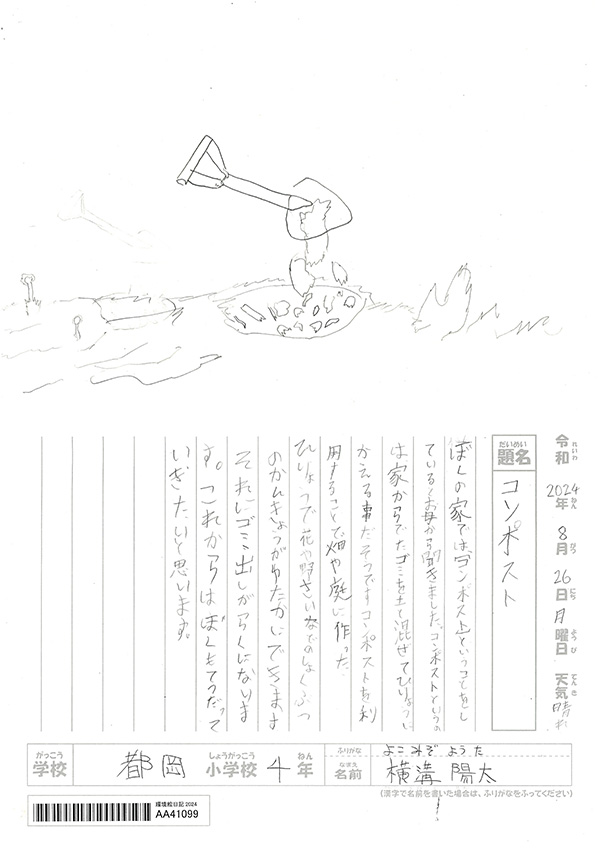 令和 2024年 8月 26日 月曜日 天気 晴れ
れいわ ねん がつ にち ようび てんき
だいめい
題名 コンポスト
ぼくの家では「コンポスト」ということをし
ているとお母から聞きました。コンポストというの
は家からでたゴミを土て混ぜてひりょうに
かえる事だそうですコンポストを利
用することで畑や庭に作った
ひりょうで花や野さいなでのしょくぶつ
のかんきょうがゆたかにできます
それにゴミ出しがらくになりま
す。これからはぼくもてつだって
いきたいと思います。
がっこう しょうがっこう ねん
学校 都岡 小学校 4年
ふりがな よこみぞ ようた
なまえ
名前 横溝 陽太
(漢字で名前を書いた場合は、ふりがなをふってください)
環境絵日記2024
AA41099